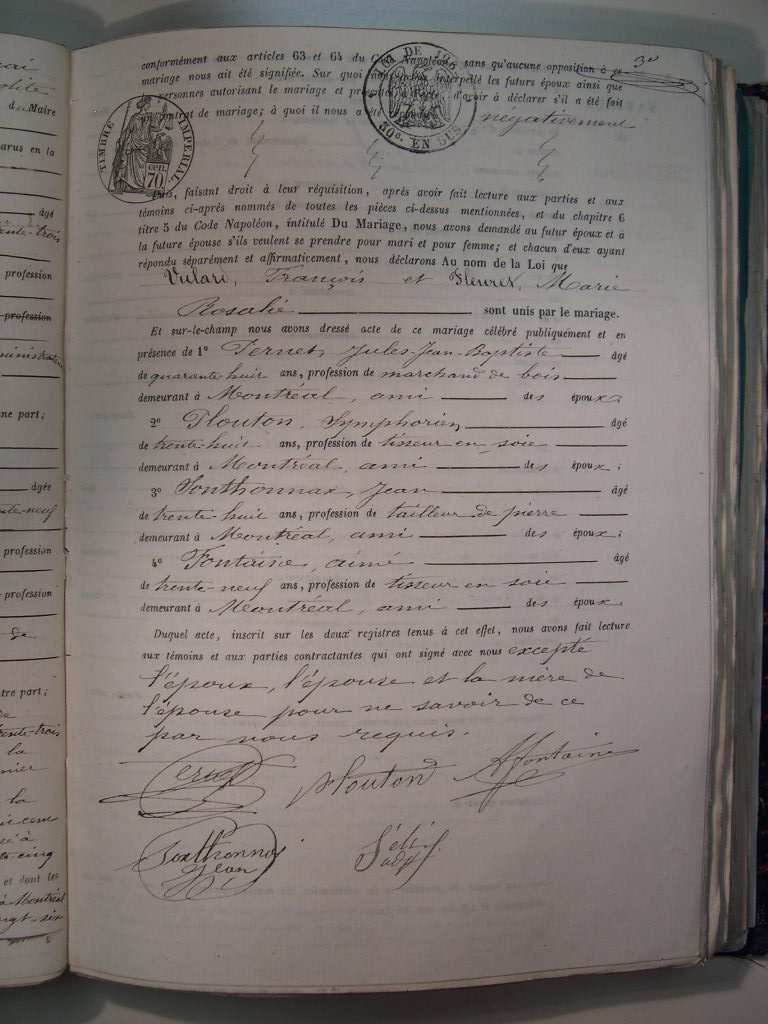 30
conformément aux articles 63 et 64 du Code Napoléon, sans qu'aucune opposition à ce
mariage nous ait été signifiée. Sur quoi nous avons interpellé les futurs époux ainsi que
personnes autorisant le mariage et d'avoir à déclarer s'il a été fait
contrat de mariage; à quoi il nous a été négativement
TIMBRE IMPÉRIAL
CEN. 70
EN SUS
Puis, faisant droit à leur réquisition, après avoir fait lecture aux parties et aux
témoins ci-après nommés de toutes les pièces ci-dessus mentionnées, et du chapitre 6
titre 5 du Code Napoléon, intitulé Du Mariage, nous avons demandé au futur époux et à
la future épouse s'ils veulent se prendre pour mari et pour femme; et chacun d'eux ayant
répondu séparément et affirmativement, nous déclarons Au nom de la Loi que
Vulard, François et Fleuret, Marie
Rosalie sont unis par le mariage.
Et sur-le-champ nous avons dressé acte de ce mariage célébré publiquement et en
présence de 1° Pernet, Jules-Jean-Baptiste âgé
de quarante-huit ans, profession de marchand de bois
demeurant à Montréal, ami des époux;
2° Plouton, Symphorien, âgé
de trente-huit ans, profession de tisseur en soie
demeurant à Montréal, ami des époux;
3° Sonthonnax, Jean âgé
de trente-huit ans, profession de tailleur de pierre
demeurant à Montréal, ami des époux;
4° Fontaine, aimé âgé
de trente-neuf ans, profession de tisseur en soie
demeurant à Montréal, ami des époux
Duquel acte, inscrit sur les deux registres tenus à cet effet, nous avons fait lecture
aux témoins et aux parties contractantes qui ont signé avec nous excepté
l'époux, l'épouse et la mère de
l'épouse pour ne savoir de ce
par nous requis.
Plouton
A Fontaine
Sonthonnax
Jean
du Maire
âgé
trente-trois
profession
profession
ne part;
âgée
profession
profession
de
tre part;
trente-trois
la
la
cinq
et dont les
à Montréal